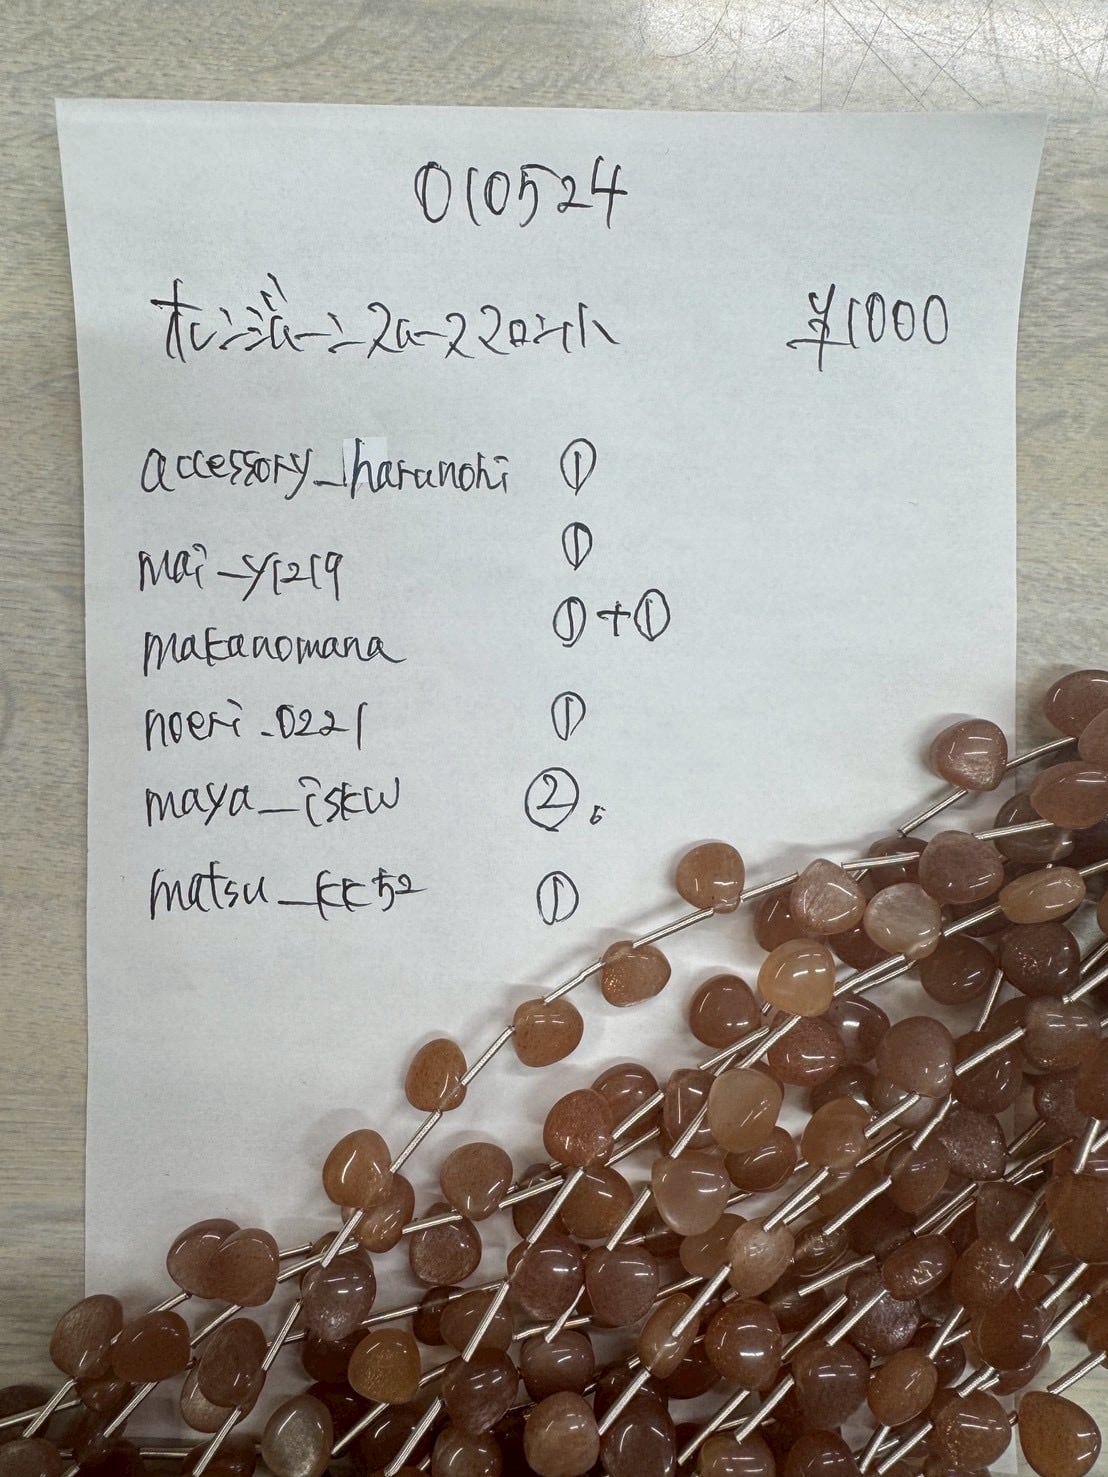 010524
オレンジムーンスムースマロン ¥1000
accessory_harunohi ①
mai_y1219 ①
makanomana ①+①
noeri_0221 ①
maya_iskw ②
matsu_kk52 ①